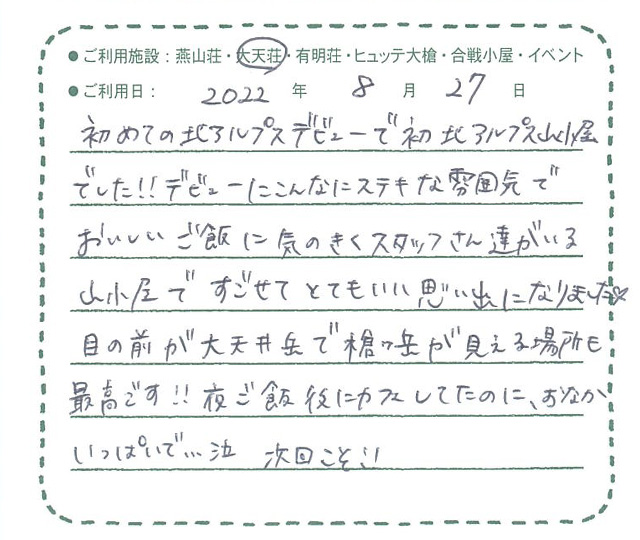 ●ご利用施設：燕山荘・大天荘・有明荘・ヒュッテ大槍・合戦小屋・イベント
●ご利用日： 2022 年 8 月 27 日
初めての北アルプスデビューで初北アルプス山小屋
でした!!デビューにこんなにステキな雰囲気で
おいしいご飯に気のきくスタッフさん達がいる
山小屋ですごせてとてもいい思い出になりました♡
目の前が大天井岳で槍ヶ岳が見える場所も
最高です!!夜ご飯後にカフェしてたのに、おなか
いっぱいで…泣 次回こそ!!